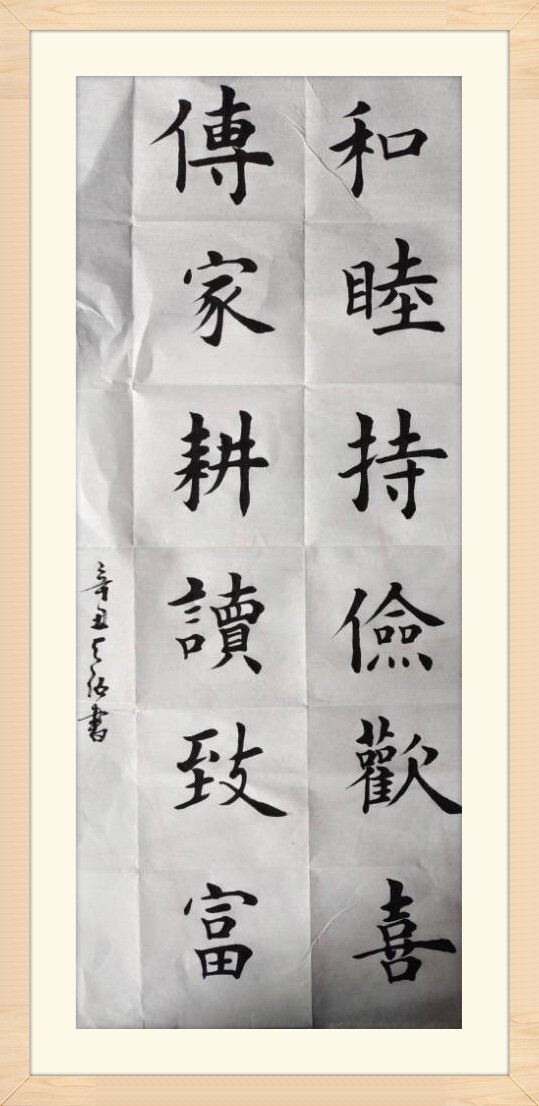 和睦持儉歡喜
傳家耕讀致富
辛丑天佑書